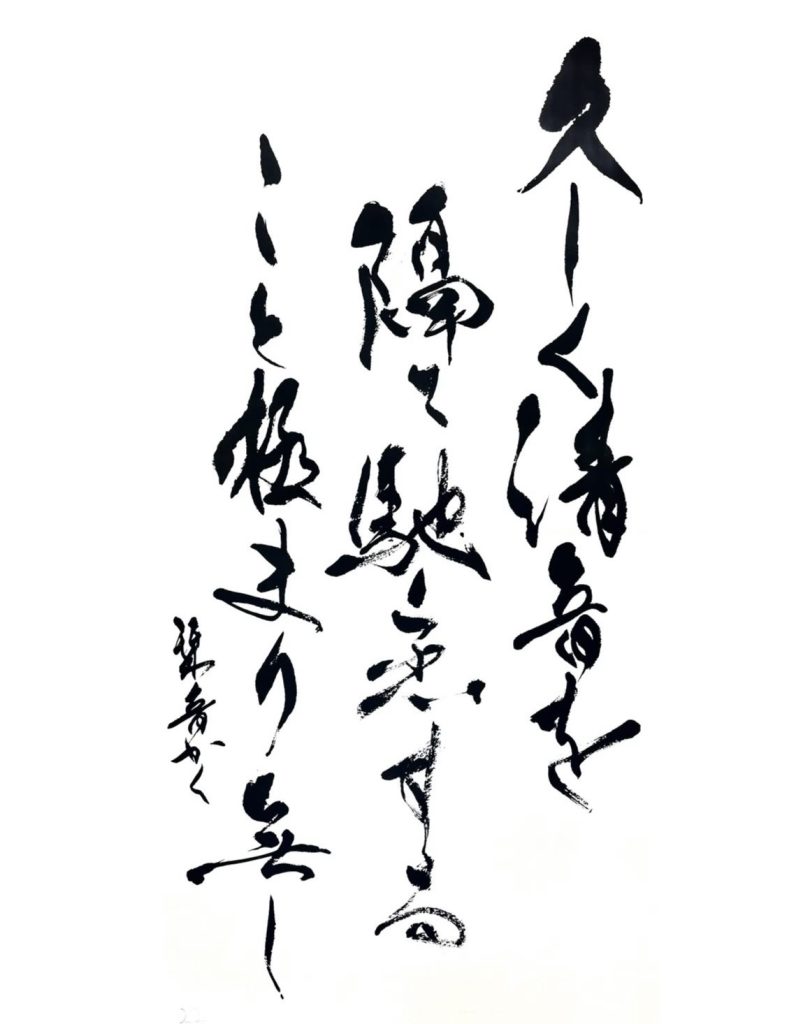 久しく清音を
隔て馳恋する
こと極まり無し
音かく